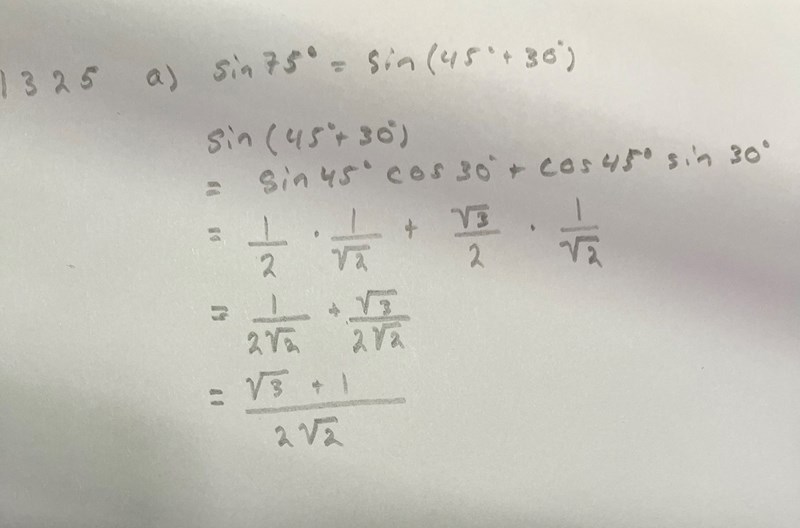 1325 a) sin 75° = sin (45° + 30°)
sin (45° + 30°)
= sin 45° cos 30° + cos 45° sin 30°
= 1/2 · 1/√2 + √3/2 · 1/√2
= 1/2√2 + √3/2√2
= √3 + 1/2√2